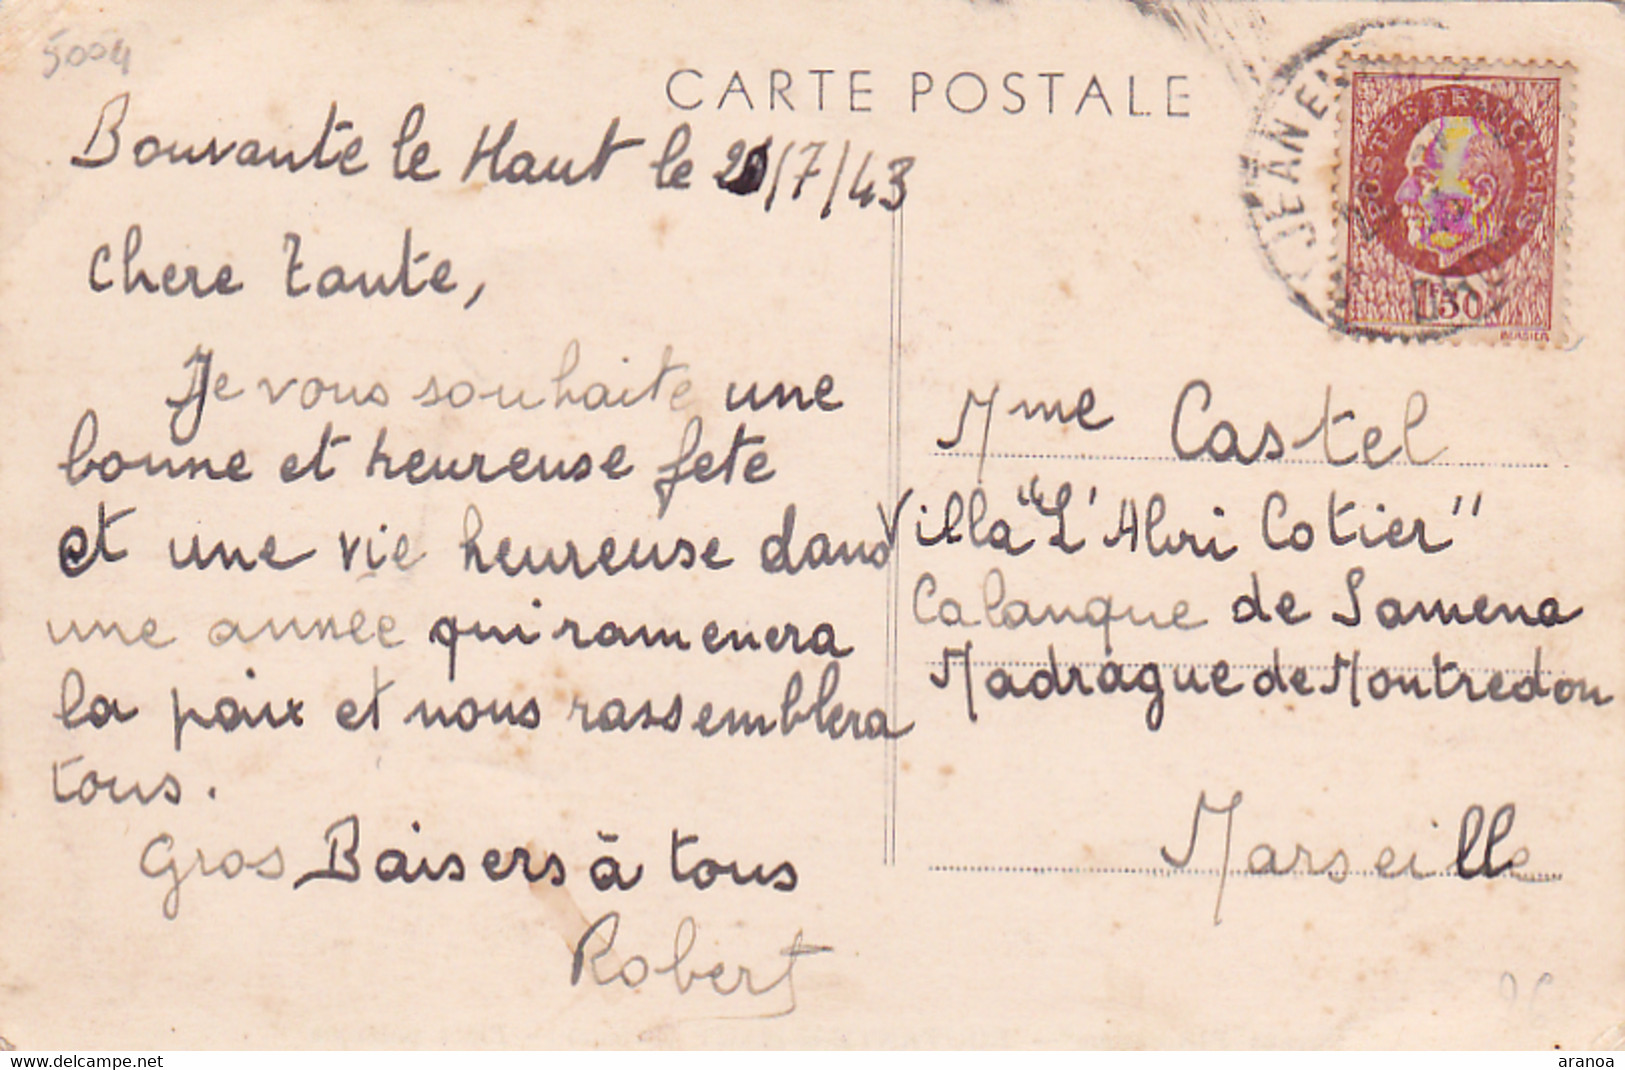 5004
CARTE POSTALE
Bouvante le Haut le 20/7/43
Chere Tante,
Je vous souhaite une
bonne et heureuse fete
et une vie heureuse dans
une année qui ramenera
la paix et nous rassemblera
tous.
Gros Baisers à tous
Robert
JEAN EN
POSTES FRANÇAISES
1F50
Mme Castel
Villa "L'Abri Cotier"
Calanque de Samena
Madrague de Montredon
Marseille
26
aranoa